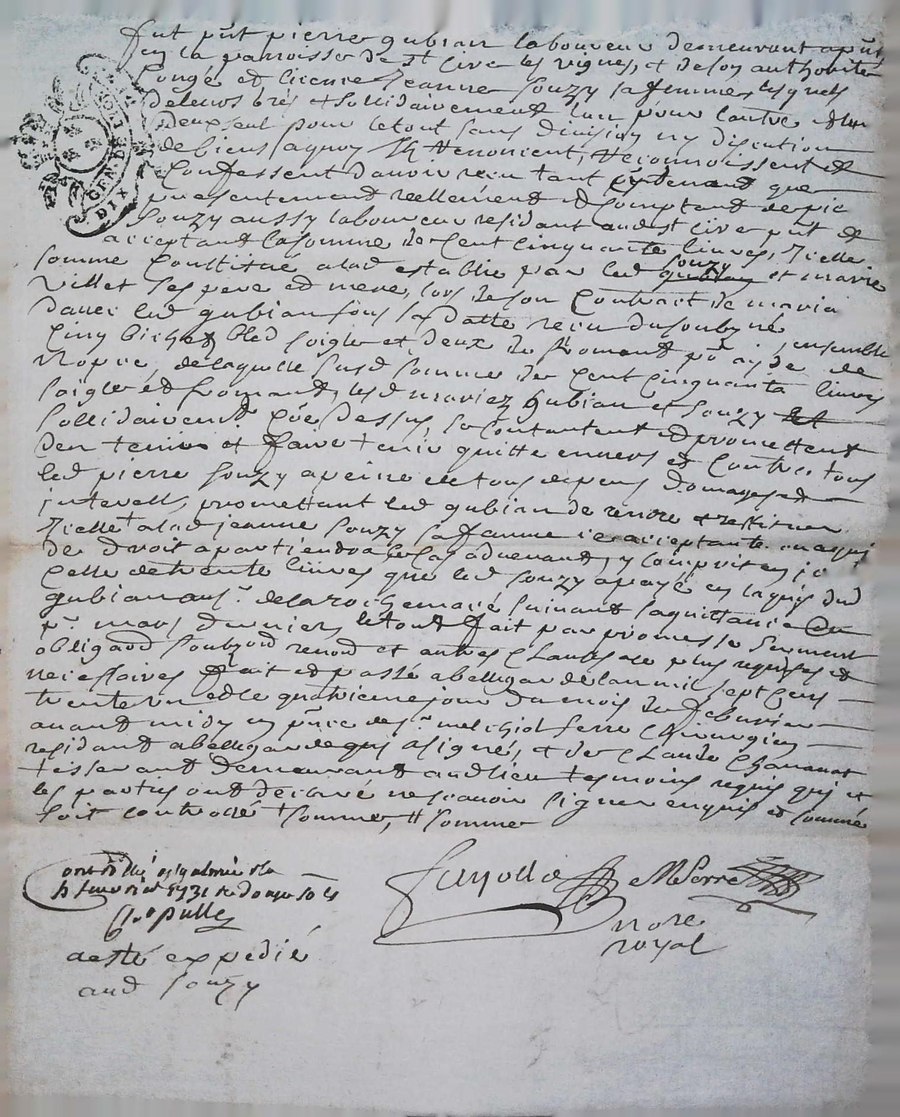 fut pnt pierre gubian laboureur demeurant a pnt
en la parroisse de st Cire les vignes, et de son authorité
Congé et licence Jeanne Souzy sa femme, lesquels
de leurs bres et sollidairement l'un pour l'autre
deux seul pour le tout sans division ny discution
de biens a quoy Ils renoncent, reconnoissent et
Confessent d'avoir reçu tant cy devant que
presentement reellement et comptand de pie
Souzy aussy laboureur residant aud st Cire pnt et
acceptant la somme de Cent Cinquante livres, Icelle
somme Constitué a lad establie par led souzy et marie
Villet ses pere et mere, lors de son Contract de maria
d'avec led gubian sous sa datte receu du soubné
Cinq bichet bled soigle et deux de froment ensemble
de laquelle susd somme de Cent Cinquante livres
soigle et fromand, lesd mariez gubian et Souzy
sollidairement Côe dessus, se contantent et promettent
d'en tenir et faire tenir quitte envers et Contre tous
led pierre Souzy a peine de tous depens domages et
interests, promettant led gubian de rendre et restituer
Icelle a lad jeanne Souzy sa femme acceptante ou a qui
de droit apartiendra le Cas advenant, y Compris
Celle de trente livres que led Souzy a payé en l'aquis dud
gubian au sr. de la rochemacé suivant sa quittance du
mars dernier, le tout fait par promesse serment
obligaon renond et autres Clauses de plus requises et
necessaires fait et passé a bellegarde l'an mil sept cens
trente un et le quatrieme jour du mois de febvrier
avant midy en pnce de sr. melchiol ferre Chirurgien
residant a bellegarde qui a signé, et de Claude Chananat
tisserant demeurant aud lieu tesmoins requis qui et
les parties ont declaré ne scavoir signer enquis et sommé
soit controllé + somme, # somme
DIX
GEN. DE
fevrier 1731
a esté expedié
aud Souzy
MFerre
nore
royal